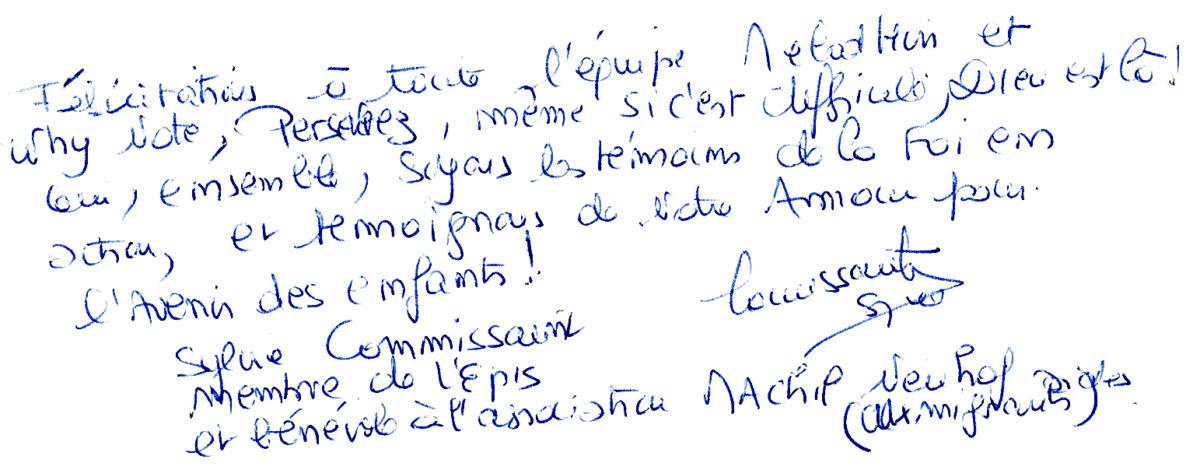 Félicitations à toute l'équipe et
Why Note, Persévérez, même si c'est difficile, Dieu est là!
Oui, ensemble, soyons les témoins de la Foi en
action, et témoignons de notre Amour pour
l'Avenir des enfants!
Sylvie Commissaire
membre de l'Epis
et bénévole à l'association Neuhof
(aux migrants)